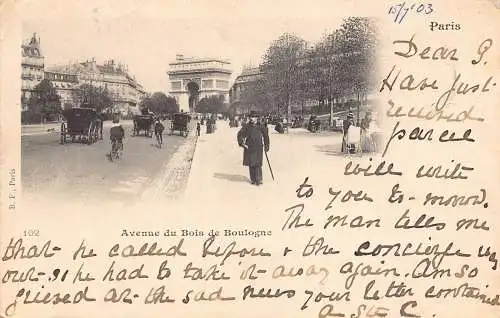 15/7 03
Paris
Dear G.
Have just
received
parcel
will write
to you to-morrow.
The man tells me
B. F., Paris
102 Avenue du Bois de Boulogne
that he called before & the concierge was
out. & he had to take it away again. Am so
grieved at the sad news your letter contained